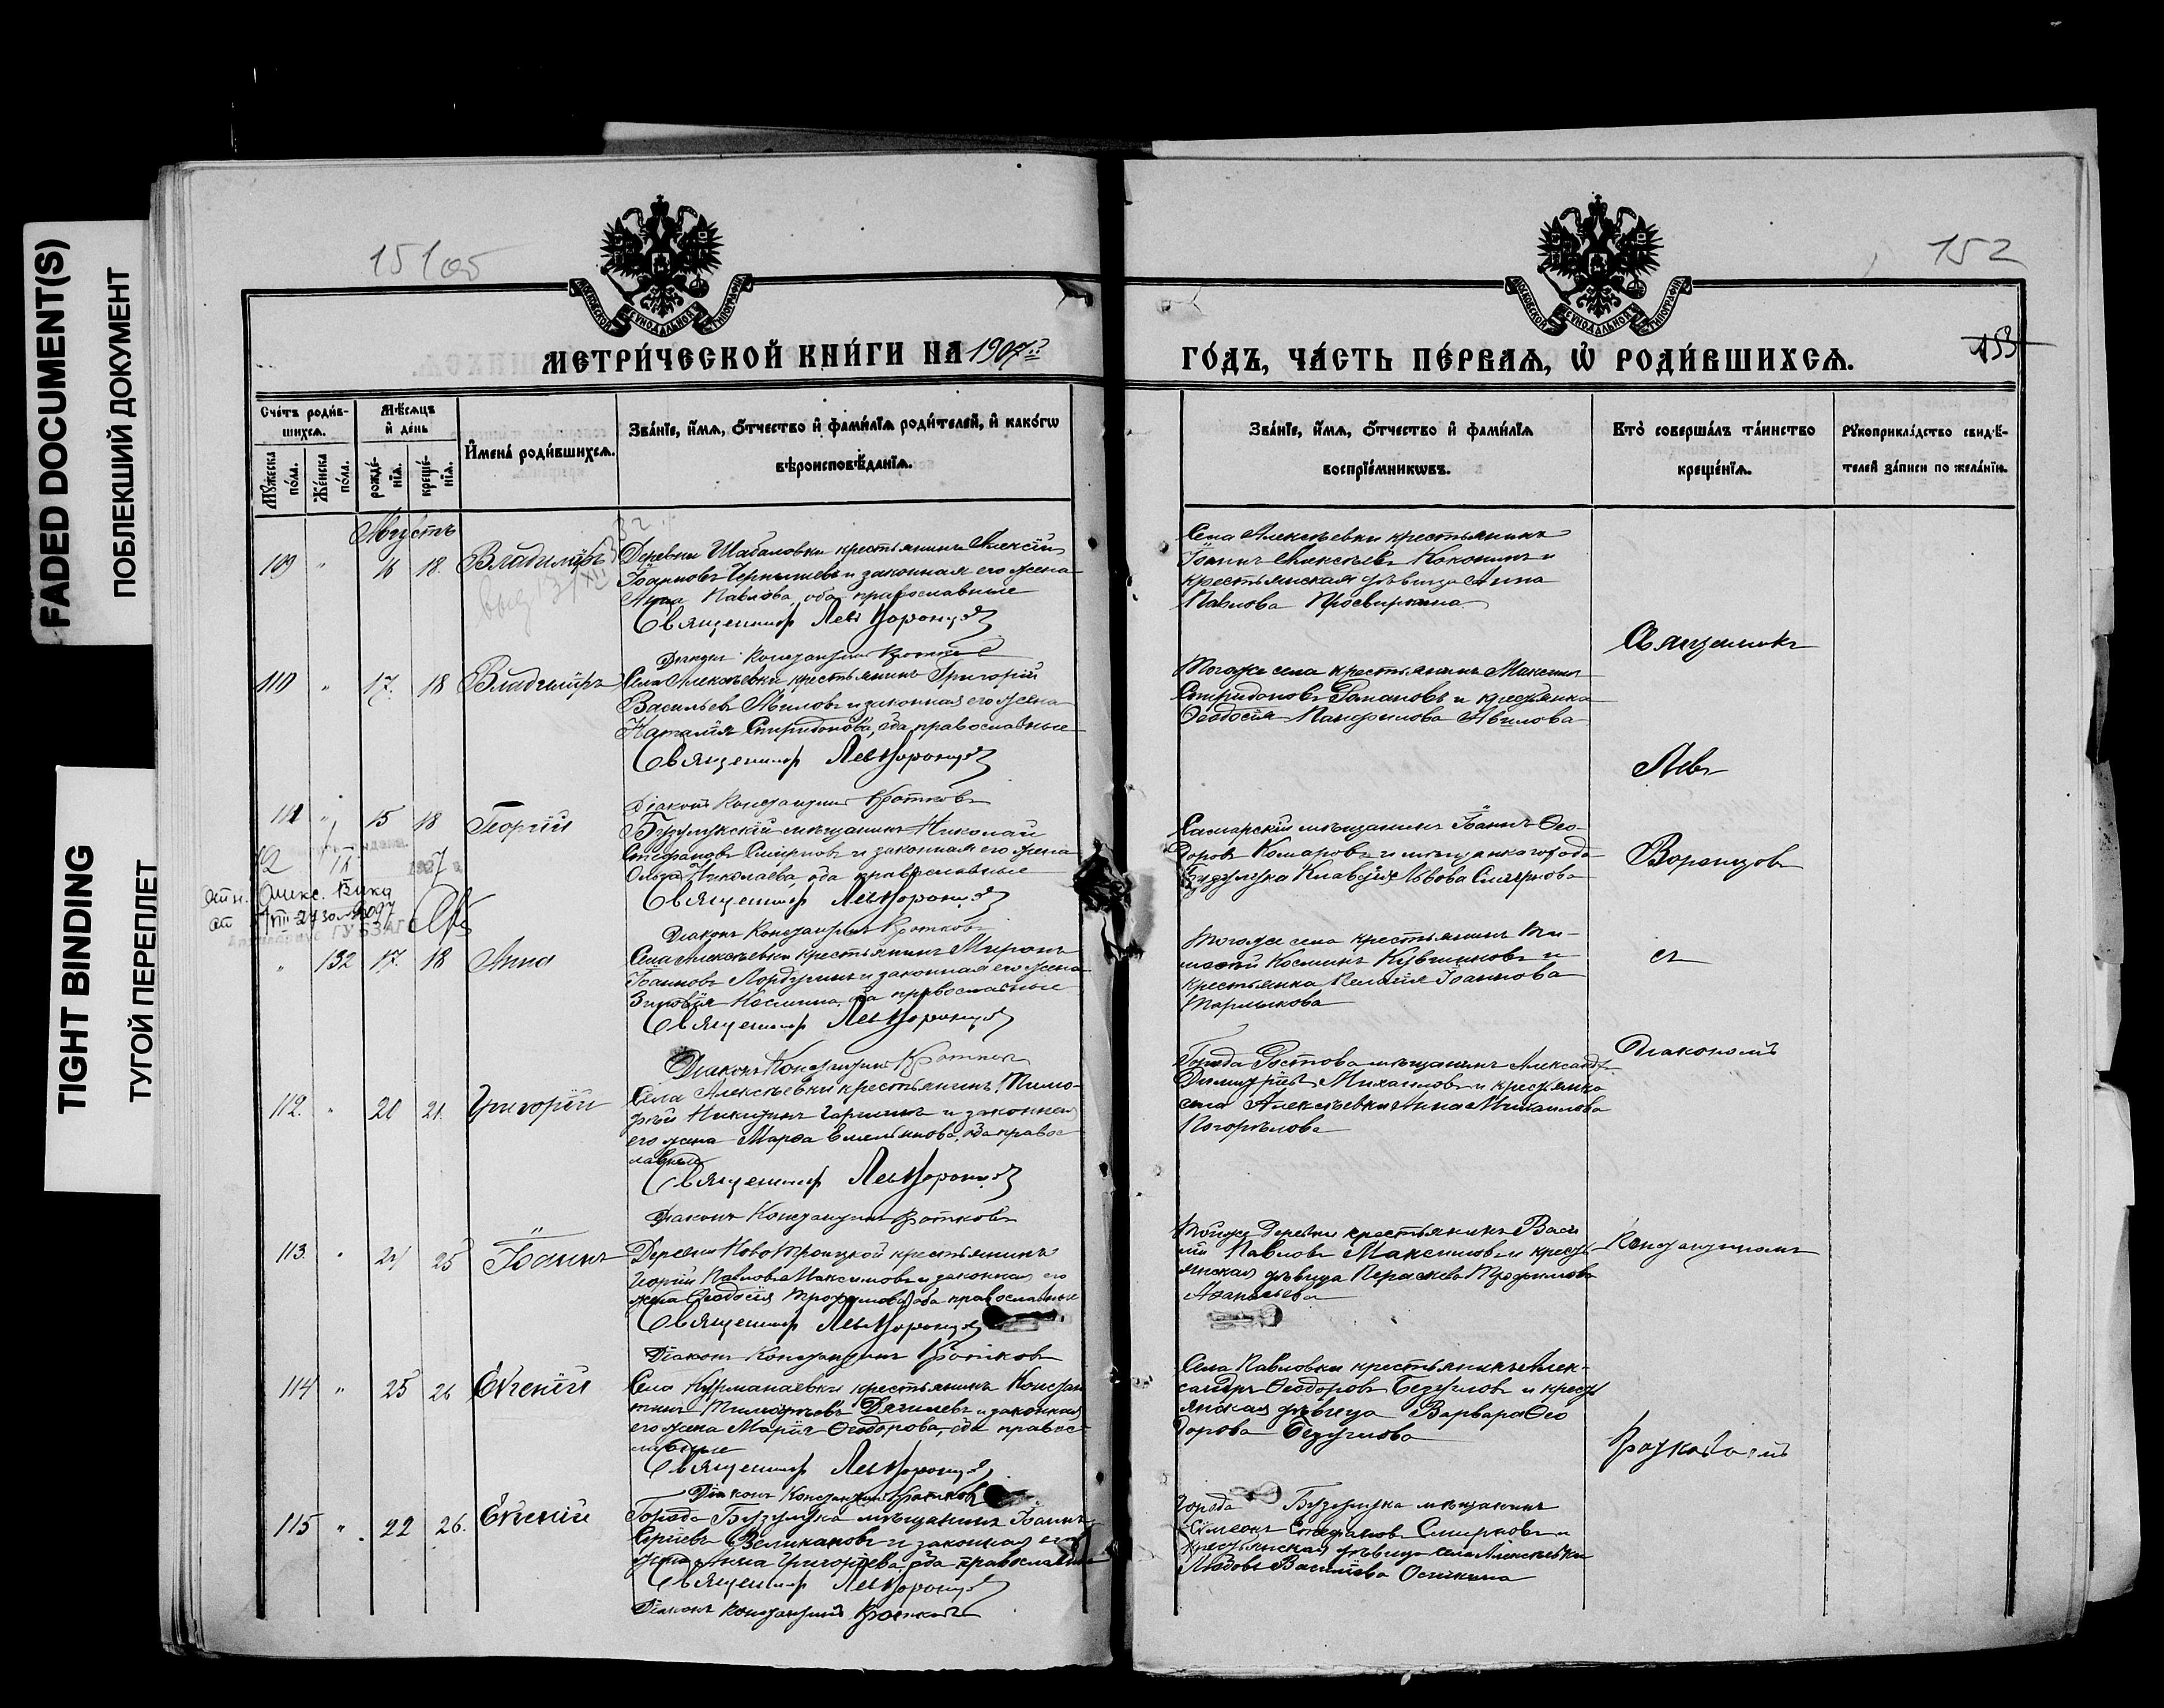 FADED DOCUMENT(S)
ПОБЛЕКШИЙ ДОКУМЕНТ
TIGHT BINDING
ТУГОЙ ПЕРЕПЛЕТ
152
153
МОСКОВСКОЙ СУНОДАЛЬНОЙ ТИПОГРАФІИ
МОСКОВСКОЙ СУНОДАЛЬНОЙ ТИПОГРАФІИ
МЕТРИ́ЧЕСКОЙ КНИ́ГИ НА 1907
ГО́ДЪ, ЧА́СТЬ ПЕ́РВАѦ, Ѡ҆ РОДИ́ВШИХСѦ.
Сче́тъ роди́в-
шихсѧ.
Мѣ́сѧцъ
и҆ де́нь
Мꙋ́жеска
по́ла.
Же́нска
по́ла.
рожде́-
нїѧ.
креще́-
нїѧ.
И҆мена̀ роди́вшихсѧ.
Зва́нїе, и҆́мѧ, ѻ҆́тчество и҆ фами́лїѧ роди́телей, и҆ како́гѡ
вѣроисповѣ́данїѧ.
Зва́нїе, и҆́мѧ, ѻ҆́тчество и҆ фами́лїѧ
воспрїе́мникѡвъ.
Кто̀ соверша́лъ та́инство
креще́нїѧ.
Рꙋкоприкла́дство свидѣ́-
телей за́писи по жела́нїю.
Августъ
109 " 16 18. Владиміръ
Деревни Шабаловки крестьянинъ Алексій
Іоанновъ Чернышевъ и законная его жена
Анна Павлова, оба православные
Священникъ Левъ Воронцовъ
Діаконъ Константинъ Кротковъ
Села Алексѣевки крестьянинъ
Іоаннъ Алексѣевъ Коконинъ и
крестьянская дѣвица Анна
Павлова Просвиркина
110 " 17. 18 Владиміръ
Села Алексѣевки крестьянинъ Григорій
Васильевъ Авиловъ и законная его жена
Наталія Спиридонова, оба православные
Священникъ Левъ Воронцовъ
Діаконъ Константинъ Кротковъ
Тогоже села крестьянинъ Максимъ
Спиридоновъ Романовъ и крестьянка
Ѳеодосія Панфилова Авилова
111 " 15 18 Георгій
Бузулукскій мѣщанинъ Николай
Стефановъ Смирновъ и законная его жена
Ольга Николаева, оба православные
Священникъ Левъ Воронцовъ
Діаконъ Константинъ Кротковъ
Самарскій мѣщанинъ Іоаннъ Ѳео-
доровъ Комаровъ и мѣщанка города
Бузулука Клавдія Львова Смирнова
1927 г.
" 132 17. 18 Анна
Села Алексѣевки крестьянинъ Миронъ
Іоанновъ Лордугинъ и законная его жена
Зиновія Космина, оба православные
Священникъ Левъ Воронцовъ
Діаконъ Константинъ Кротковъ
Тогоже села крестьянинъ Ти-
моѳей Косминъ Кувшиновъ и
крестьянка Пелагія Іоаннова
112. " 20 21. Григорій
Села Алексѣевки крестьянинъ Тимо-
фѣй Никитинъ Гаршинъ и законная
его жена Марѳа Емельянова, оба правос-
лавные
Священникъ Левъ Воронцовъ
Діаконъ Константинъ Кротковъ
Города Ростова мѣщанинъ Александръ
Димитріевъ Михайловъ и крестьянка
села Алексѣевки Анна Михайлова
Погорѣлова
113. " 24 25 Іоаннъ
Деревни Ново Троицкой крестьянинъ
Георгій Павловъ Максимовъ и законная его
жена Ѳеодосія Трофимова, оба православные
Священникъ Левъ Воронцовъ
Діаконъ Константинъ Кротковъ
Тойже деревни крестьянинъ Васи
лій Павловъ Максимовъ и кресть
янская дѣвица Параскева Трофимова
Аѳанасьева
114 " 25 26 Евгеній
Села Курманаевки крестьянинъ Констан
тинъ Тимофѣевъ и законная
его жена Марія Ѳеодорова, оба правос-
лавные
Священникъ Левъ Воронцовъ
Діаконъ Константинъ Кротковъ
Села Павловки крестьянинъ Алек-
сандръ Ѳеодоровъ Безугловъ и кресть
янская дѣвица Варвара Ѳео
дорова Безуглова
115 " 22 26. Евгеній
Города Бузулука мѣщанинъ Іоаннъ
Сергіевъ Великановъ и законная его
жена Анна Григорьева, оба православные
Священникъ Левъ Воронцовъ
Діаконъ Константинъ Кротковъ
Города Бузулука мѣщанинъ
Симеонъ Стефановъ Смирновъ и
крестьянская дѣвица села Алексѣевки
Любовь Васильева Осипкина
Священникъ
Левъ
Воронцовъ
съ
Діакономъ
Константиномъ
Кротковымъ